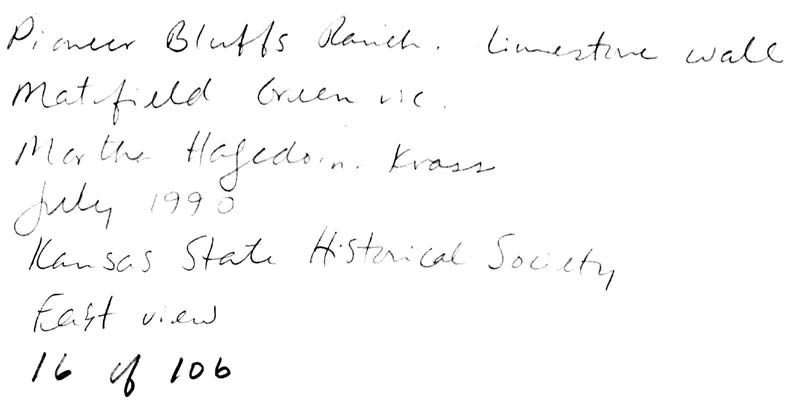 Pioneer Bluffs Ranch. Limestone wall
Matfield Green vic.
Martha Hagedorn-Krass
July 1990
Kansas State Historical Society
East view
16 of 106